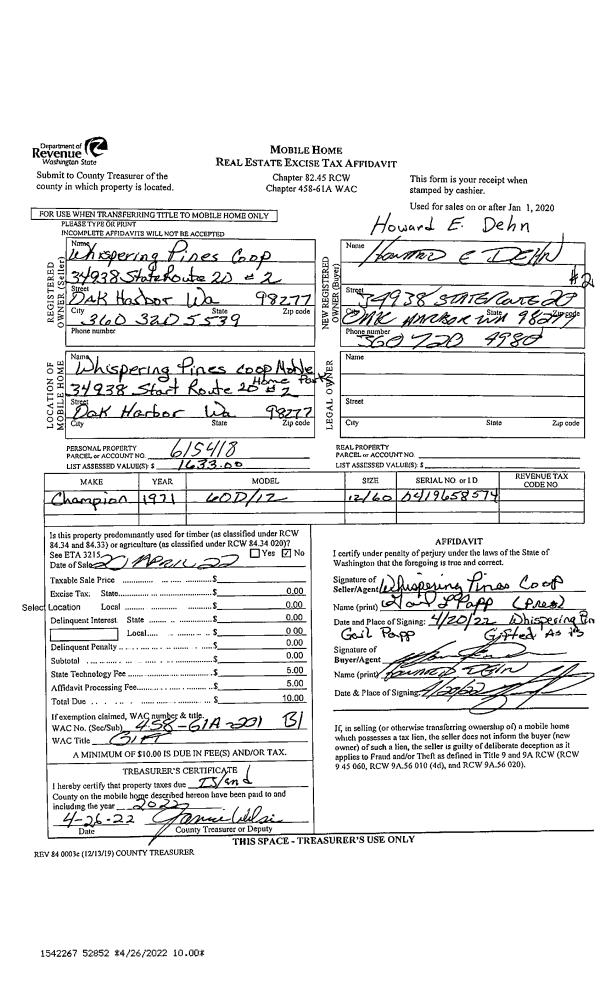 Department of
Revenue
Washington State
Submit to County Treasurer of the
county in which property is located.
MOBILE HOME
REAL ESTATE EXCISE TAX AFFIDAVIT
Chapter 82.45 RCW
Chapter 458-61A WAC
This form is your receipt when
stamped by cashier.
Used for sales on or after Jan 1, 2020
FOR USE WHEN TRANSFERRING TITLE TO MOBILE HOME ONLY
PLEASE TYPE OR PRINT
INCOMPLETE AFFIDAVITS WILL NOT BE ACCEPTED
Howard E. Dehn
REGISTERED
OWNER (Seller)
Name
Whispering Pines Coop
34938 State Route 20 #2
Street
Oak Harbor Wa 98277
City State Zip code
360 320 5539
Phone number
NEW REGISTERED
OWNER (Buyer)
Name
Howard E DEHN
#2
34938 STATE ROUTE 20
Street
OAK HARBOR WA 98277
City State Zip code
Phone number
360 720 4980
LOCATION OF
MOBILE HOME
Name
Whispering Pines Coop Mobile
Home Park
34938 Start Route 20 #2
Street
Oak Harbor Wa 98277
City State Zip code
LEGAL OWNER
Name
Street
City State Zip code
PERSONAL PROPERTY
PARCEL or ACCOUNT NO. 615418
LIST ASSESSED VALUE(S): $ 1633.00
REAL PROPERTY
PARCEL or ACCOUNT NO.
LIST ASSESSED VALUE(S): $
MAKE YEAR MODEL SIZE SERIAL NO. or I D REVENUE TAX CODE NO
Champion 1971 60D/12 12/60 0419658574
Is this property predominantly used for timber (as classified under RCW
84.34 and 84.33) or agriculture (as classified under RCW 84.34 020)?
See ETA 3215. Yes ☑ No
Date of Sale APRIL 22
Taxable Sale Price $
Excise Tax. State $ 0.00
Select Location Local $ 0.00
Delinquent Interest State $ 0.00
Local $ 0 00
Delinquent Penalty $ 0.00
Subtotal $ 0.00
State Technology Fee $ 5.00
Affidavit Processing Fee $ 5.00
Total Due $ 10.00
If exemption claimed, WAC number & title.
WAC No. (Sec/Sub) 458-61A-201 B1
WAC Title GIFT
A MINIMUM OF $10.00 IS DUE IN FEE(S) AND/OR TAX.
TREASURER'S CERTIFICATE
I hereby certify that property taxes due Island
County on the mobile home described hereon have been paid to and
including the year 2022
4-26-22
Date County Treasurer or Deputy
AFFIDAVIT
I certify under penalty of perjury under the laws of the State of
Washington that the foregoing is true and correct.
Signature of
Seller/Agent Whispering Pines Coop
Name (print) Gail L Papp (Pres)
Date and Place of Signing: 4/20/22 Whispering Pin
Gail Papp Gifted As is
Signature of
Buyer/Agent
Name (print) Howard DEHN
Date & Place of Signing: 4/20/22
If, in selling (or otherwise transferring ownership of) a mobile home
which possesses a tax lien, the seller does not inform the buyer (new
owner) of such a lien, the seller is guilty of deliberate deception as it
applies to Fraud and/or Theft as defined in Title 9 and 9A RCW (RCW
9 45 060, RCW 9A.56 010 (4d), and RCW 9A.56 020).
THIS SPACE - TREASURER'S USE ONLY
REV 84 0003e (12/13/19) COUNTY TREASURER
1542267 52852 *4/26/2022 10.00*